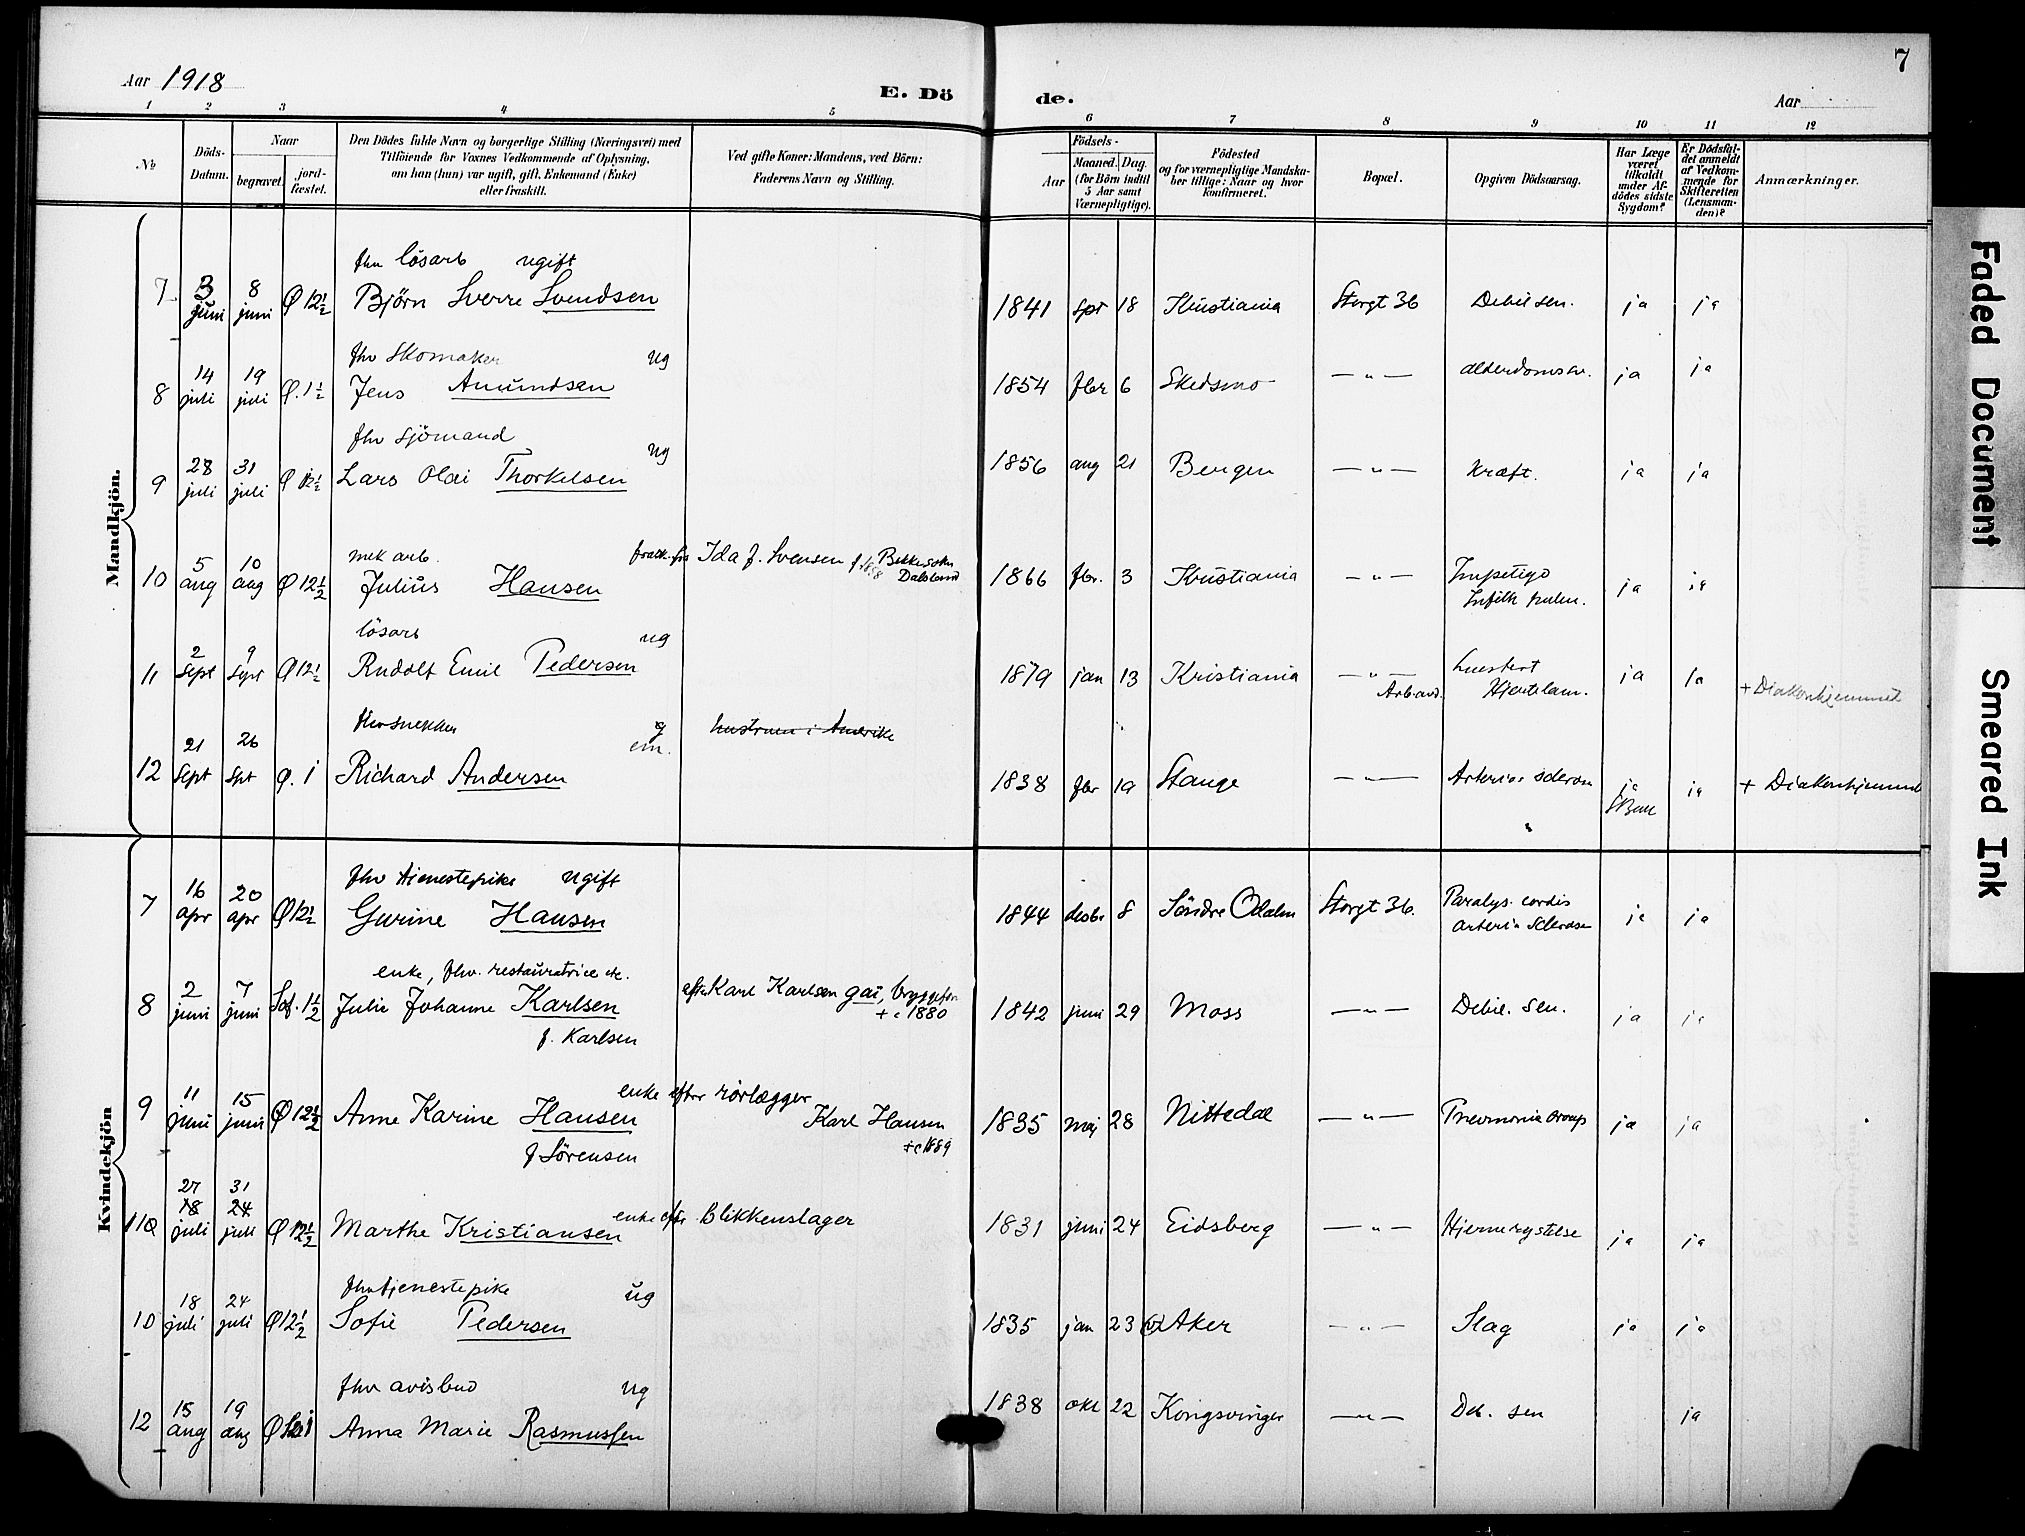 7
Aar 1918
E. Dö de.
Aar
1 2 3 4 5 6 7 8 9 10 11 12
№
Döds-Datum.
Naar
begravet.
jord-fæstet.
Den Dödes fulde Navn og borgerlige Stilling (Næringsvei) med
Tilföiende for Voxnes Vedkommende af Oplysning,
om han (hun) var ugift, gift, Enkemand (Enke)
eller fraskilt.
Ved gifte Koner: Mandens, ved Börn:
Faderens Navn og Stilling.
Födsels-
Aar
Maaned. Dag.
(for Börn indtil
5 Aar samt
Værnepligtige).
Födested
og for værnepligtige Mandska-
ber tillige: Naar og hvor
konfirmeret.
Bopæl.
Opgiven Dödsaarsag.
Har Læge
været
tilkaldt
under Af-
dödes sidste
Sygdom?
Er Dödsfal-
det anmeldt
af Vedkom-
mende for
Skifteretten
(Lensman-
den)?
Anmærkninger.
Mandkjön.
fhv løsarb ugift
7 3 juni 8 juni Ø 12½ Bjørn Sverre Svendsen 1841 spt 18 Kristiania Storgt 36 Debil sen. ja ja
fhv skomaker ug
8 14 juli 19 juli Ø. 1½ Jens Amundsen 1854 fbr 6 Skedsmo —"— alderdomssv. ja ja
fhv sjömand ug
9 28 juli 31 juli Ø 12½ Lars Olai Thorkelsen 1856 aug 21 Bergen —"— Kræft. ja ja
mek arb. frask. fra Ida f. Svensen Dalsland
10 5 aug 10 aug Ø 12½ Julius Hansen 1866 fbr. 3 Kristiania —"— Impetigo ja ja
Infilt pulm.
løsarb ug
11 2 sept 9 sept Ø 12½ Rudolf Emil Pedersen 1879 jan 13 Kristiania —"— Arb.avd. Hjertelam. ja ja + Diakonhjemmet
fhv snekker g em. hustruen i Amerika
12 21 sept 26 spt Ø. 1 Richard Andersen 1838 fbr 19 Stange —"— Arterios sclerose ja ja + Diakonhjemmet
Kvindekjön
fhv tienestepike ugift
7 16 apr 20 apr Ø 12½ Gurine Hansen 1844 desbr 8 Söndre Odalen Storgt 36. Paralys. cordis ja ja
arterio sclerose
enke, fhv. restauratrice etc.
8 2 juni 7 juni Sof. 1½ Julie Johanne Karlsen efter Karl Karlsen gai, bryggefor + c 1880 1842 juni 29 Moss —"— Debil. sen. ja ja
f. Karlsen
enke efter rørlægger
9 11 juni 15 juni Ø 12½ Anne Karine Hansen Karl Hansen + c 1889 1835 maj 28 Nittedal —"— Pneumonia croup ja ja
f Sörensen
27 31
110 18 juli 24 juli Ø 12½ Marthe Kristiansen enke efter Blikkenslager 1831 juni 24 Eidsberg —"— Hjernerystelse ja ja
fhv tjenestepike ug
10 18 juli 24 juli Ø 12½ Sofie Pedersen 1835 jan 23 Aker —"— Slag ja ja
fhv avisbud ug
12 15 aug 19 aug Ø 1 Anna Marie Rasmussen 1838 okt 22 Kongsvinger —"— Deb. sen ja
Faded Document
Smeared Ink